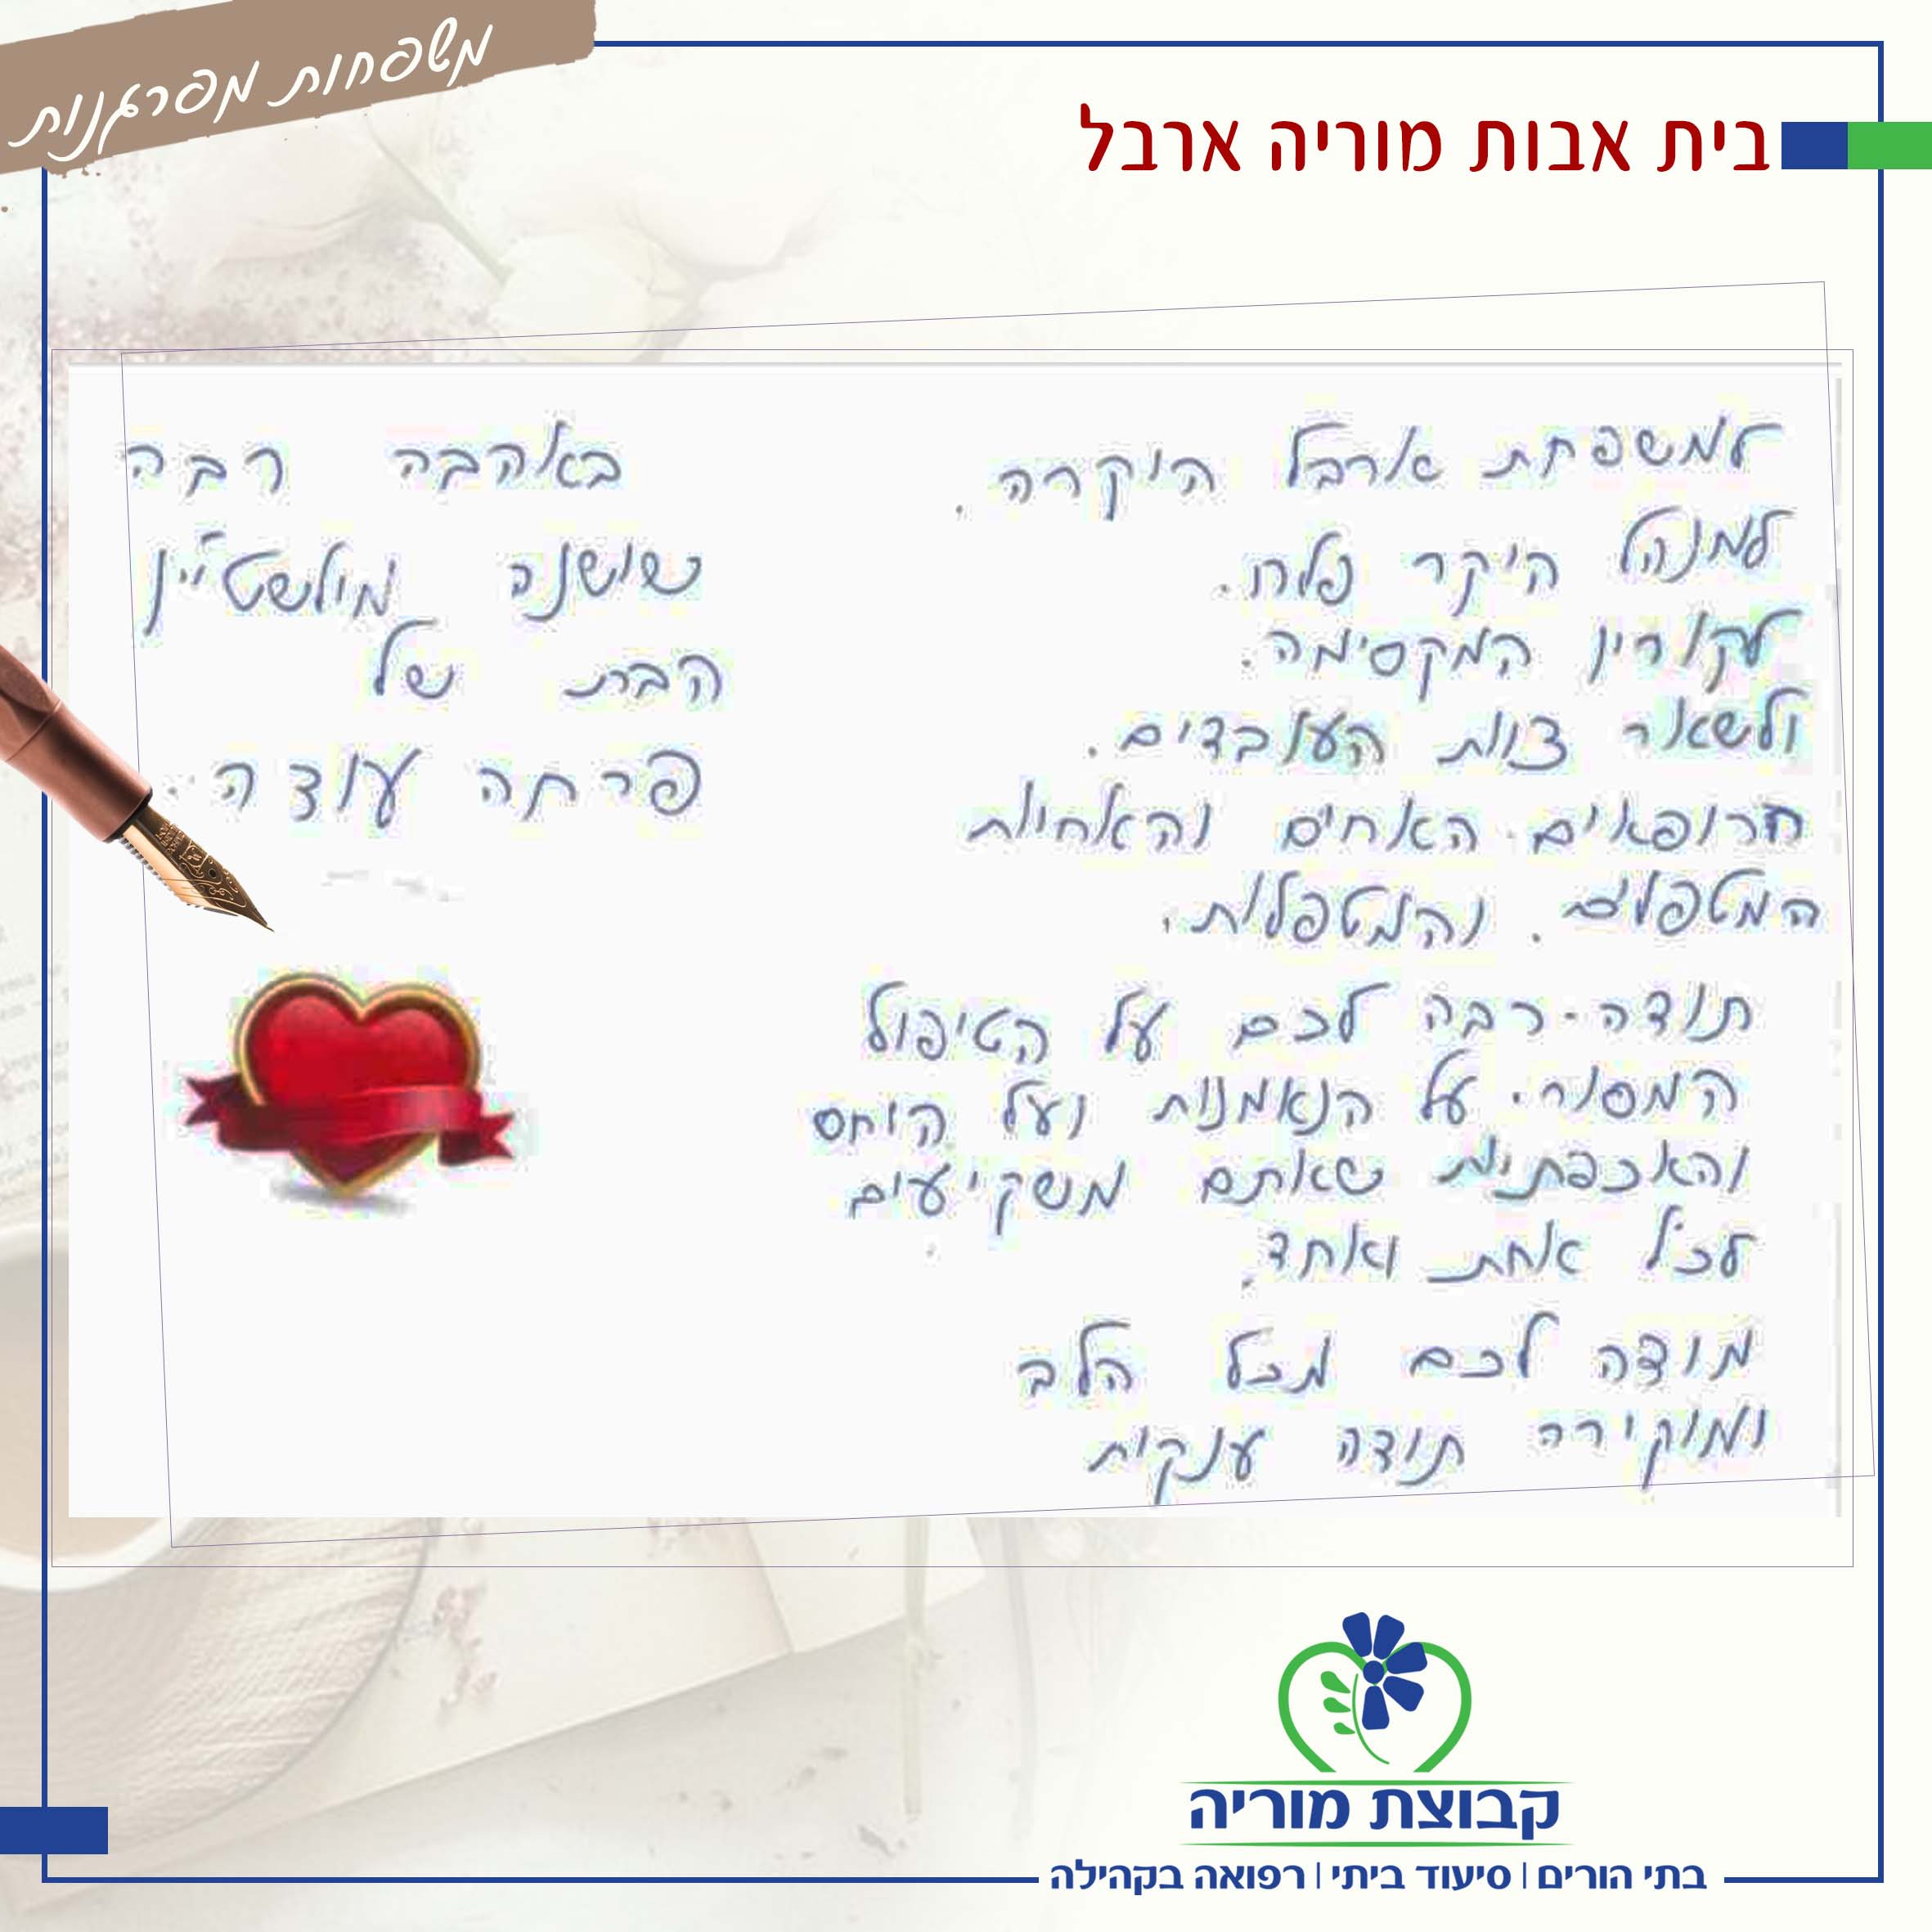 משפחות מפרגנות
בית אבות מוריה ארבל
למשפחת ארבל היקרה.
למנהל היקר
לקורין המקסימה.
ולשאר צוות העובדים.
הרופאים. האחים והאחיות
המטפלים. והמטפלות.
תודה-רבה לכם על הטיפול
המסור. על הנאמנות ועל היחס
והאכפתיות שאתם משקיעים
לכל אחת ואחד.
מודה לכם מכל הלב
ומוקירה תודה ענקית
באהבה רבה
שושנה מילשטיין
הבת של
פרחה עודה
קבוצת מוריה
בתי הורים | סיעוד ביתי | רפואה בקהילה